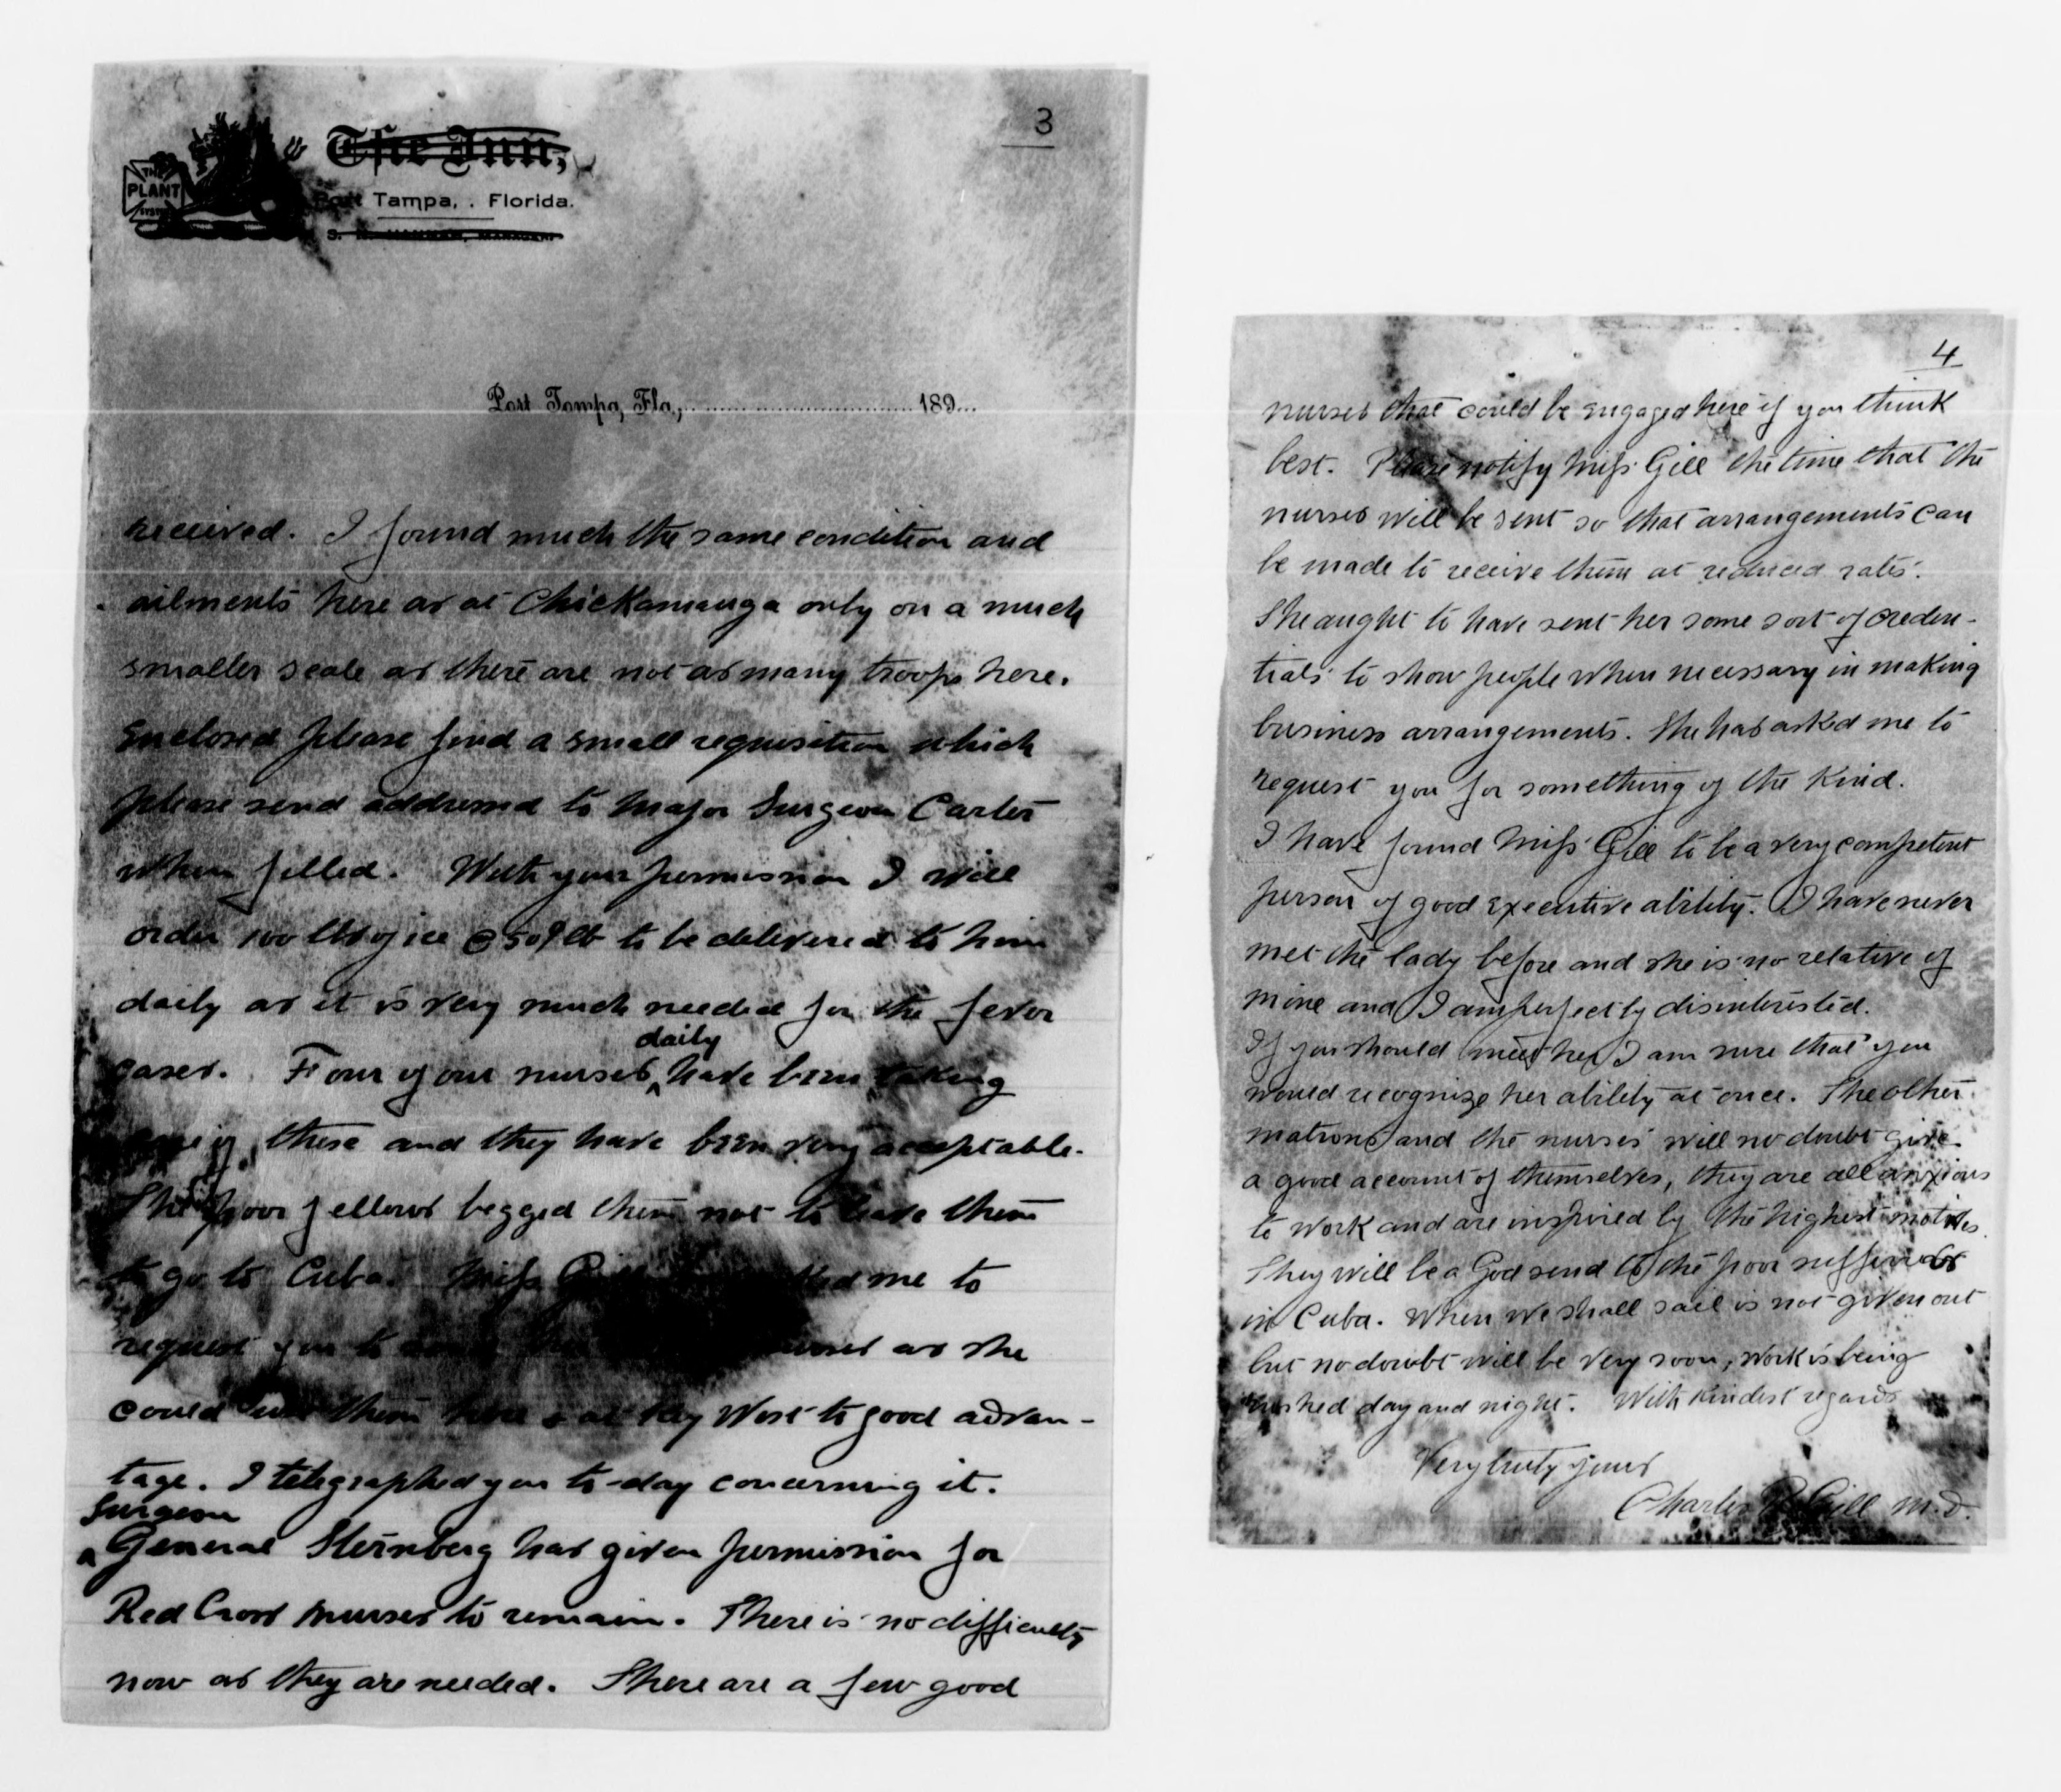 3
THE
PLANT
SYSTEM
The Inn,
Port Tampa, . Florida.
Port Tampa, Fla., 189
received. I found much the same condition and
ailments here as at Chickamauga only on a much
smaller scale as there are not as many troops here.
Enclosed please find a small requisition which
please send addressed to Major Surgeon Carter
when filled. With your permission I will
order 100 lbs of ice @ 50 ⅌ lb to be delivered to him
daily as it is very much needed for the fever
cases. Four of our nurses ^daily have been taking
care of these and they have been very acceptable.
The poor fellows begged them not to leave them
to go to Cuba. Miss asked me to
request you to nurses as she
could use them here & at Key West to good advan-
tage. I telegraphed you to-day concerning it.
^Surgeon General Sternberg has given permission for
Red Cross nurses to remain. There is no difficulty
now as they are needed. There are a few good
4
nurses that could be engaged here if you think
best. Please notify Miss Gill the time that the
nurses will be sent so that arrangements can
be made to receive them at reduced rates.
She aught to have sent her some sort of creden-
tials to show people when necessary in making
business arrangements. She has asked me to
request you for something of the kind.
I have found Miss Gill to be a very competent
person of good executive ability. I have never
met the lady before and she is no relative of
mine and I am perfectly disinterested.
If you should meet her I am sure that you
would recognize her ability at once. The other
matrons and the nurses will no doubt give
a good account of themselves, they are all anxious
to work and are inspired by the highest motives.
They will be a God send to the poor sufferers
in Cuba. When we shall sail is not given out
but no doubt will be very soon, work is being
rushed day and night. With kindest regards
Very truly yours
Charles R. Gill M.D.